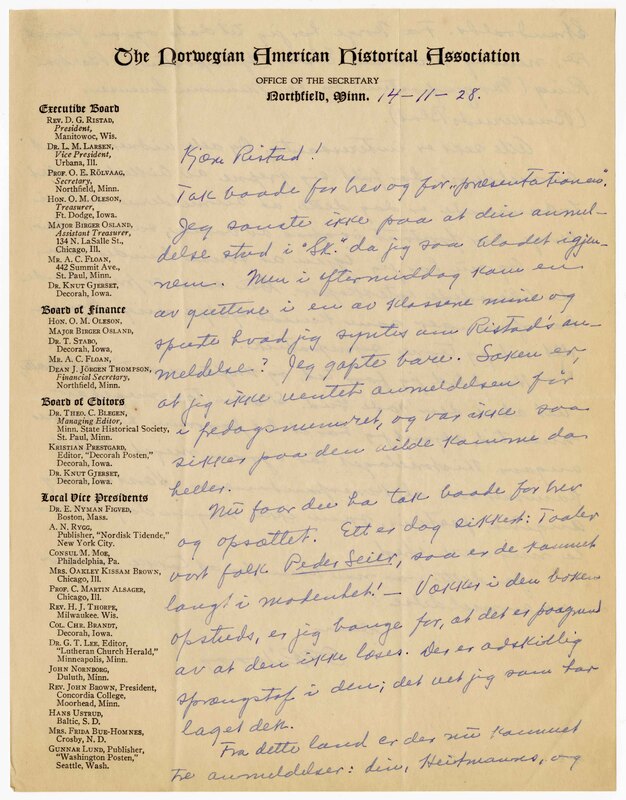 The Norwegian American Historical Association
OFFICE OF THE SECRETARY
Northfield, Minn. 14-11-28.
Executive Board
REV. D. G. RISTAD,
President,
Manitowoc, Wis.
DR. L. M. LARSEN,
Vice President,
Urbana, Ill.
PROF. O. E. RÖLVAAG,
Secretary,
Northfield, Minn.
HON. O. M. OLESON,
Treasurer,
Ft. Dodge, Iowa.
MAJOR BIRGER OSLAND,
Assistant Treasurer,
134 N. LaSalle St.,
Chicago, Ill.
MR. A. C. FLOAN,
442 Summit Ave.,
St. Paul, Minn.
DR. KNUT GJERSET,
Decorah, Iowa.
Board of Finance
HON. O. M. OLESON,
MAJOR BIRGER OSLAND,
DR. T. STABO,
Decorah, Iowa,
MR. A. C. FLOAN,
DEAN J. JÖRGEN THOMPSON,
Financial Secretary,
Northfield, Minn.
Board of Editors
DR. THEO. C. BLEGEN,
Managing Editor,
Minn. State Historical Society,
St. Paul, Minn.
KRISTIAN PRESTGARD,
Editor, "Decorah Posten,"
Decorah, Iowa.
DR. KNUT GJERSET,
Decorah, Iowa.
Local Vice Presidents
DR. E. NYMAN FIGVED,
Boston, Mass.
A. N. RYGG,
Publisher, "Nordisk Tidende,"
New York City.
CONSUL M. MOE,
Philadelphia, Pa.
MRS. OAKLEY KISSAM BROWN,
Chicago, Ill.
PROF. C. MARTIN ALSAGER,
Chicago, Ill.
REV. H. J. THORPE,
Milwaukee, Wis.
COL. CHR. BRANDT,
Decorah, Iowa.
DR. G. T. LEE, Editor,
"Lutheran Church Herald,"
Minneapolis, Minn.
JOHN NORNBORG,
Duluth, Minn.
REV. JOHN BROWN, President,
Concordia College,
Moorhead, Minn.
HANS USTRUD,
Baltic, S. D.
MRS. FRIDA BUE-HOMNES,
Crosby, N. D.
GUNNAR LUND, Publisher,
"Washington Posten,"
Seattle, Wash.
Kjære Ristad!
Tak baade for brev og for "presentationen".
Jeg sanste ikke paa at din anmel-
delse stod i "Sk." da jeg saa bladet igjen-
nem. Men i eftermiddag kom en
av guttene i en av klassene mine og
spurte hvad jeg syntes om Ristad's an-
meldelse? Jeg gapte bare. Saken er,
at jeg ikke ventet anmeldelsen før
i fredagsnumret, og var ikke saa
sikker paa den vilde komme da
heller.
Nu faar du ha tak baade for brev
og opsættet. Ett er dog sikkert: Taaler
vort folk Peder Seier, saa er de kommet
langt i modenhet! — Vækker i den boken
opstuds, er jeg bange for, at det er paagrund
av at den ikke læses. Der er adskillig
sprængstof i den; det vet jeg som har
laget den.
Fra dette land er der nu kommet
tre anmeldelser: din, Heitmanns, og